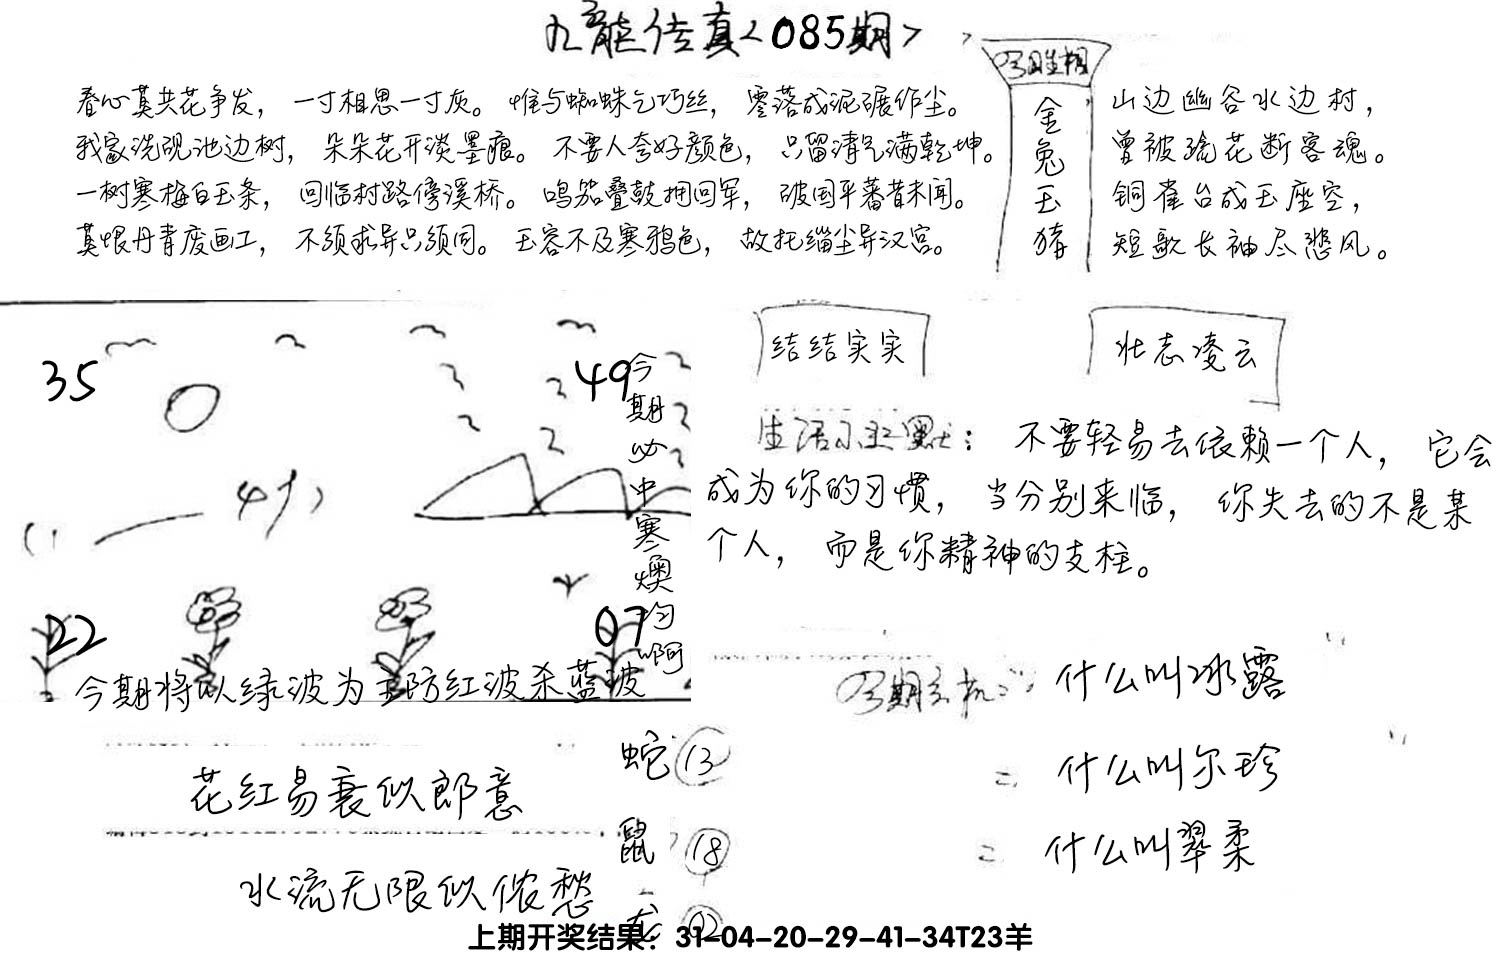 九龍传真<085期>
春心莫共花争发，一寸相思一寸灰。惟与蜘蛛乞巧丝，零落成泥碾作尘。
我家洗砚池边树，朵朵花开淡墨痕。不要人夸好颜色，只留清气满乾坤。
一树寒梅白玉条，回临村路傍溪桥。鸣笳叠鼓拥回军，破国平蕃昔未闻。
莫恨丹青废画工，不须求异只须同。玉容不及寒鸦色，故托缁尘异汉宫。
今期生相
金兔玉猪
山边幽谷水边村，
曾被疏花断客魂。
铜雀台成玉座空，
短歌长袖尽悲风。
35
49
22
07
今期必中寒燠均啊
今期将以绿波为主防红波杀蓝波
结结实实
壮志凌云
生活幽默：不要轻易去依赖一个人，它会
成为你的习惯，当分别来临，你失去的不是某
个人，而是你精神的支柱。
今期玄机：什么叫冰露
什么叫尔珍
什么叫翠柔
花红易衰似郎意
水流无限似侬愁
蛇 13
鼠 18
02
上期开奖结果：31-04-20-29-41-34T23羊